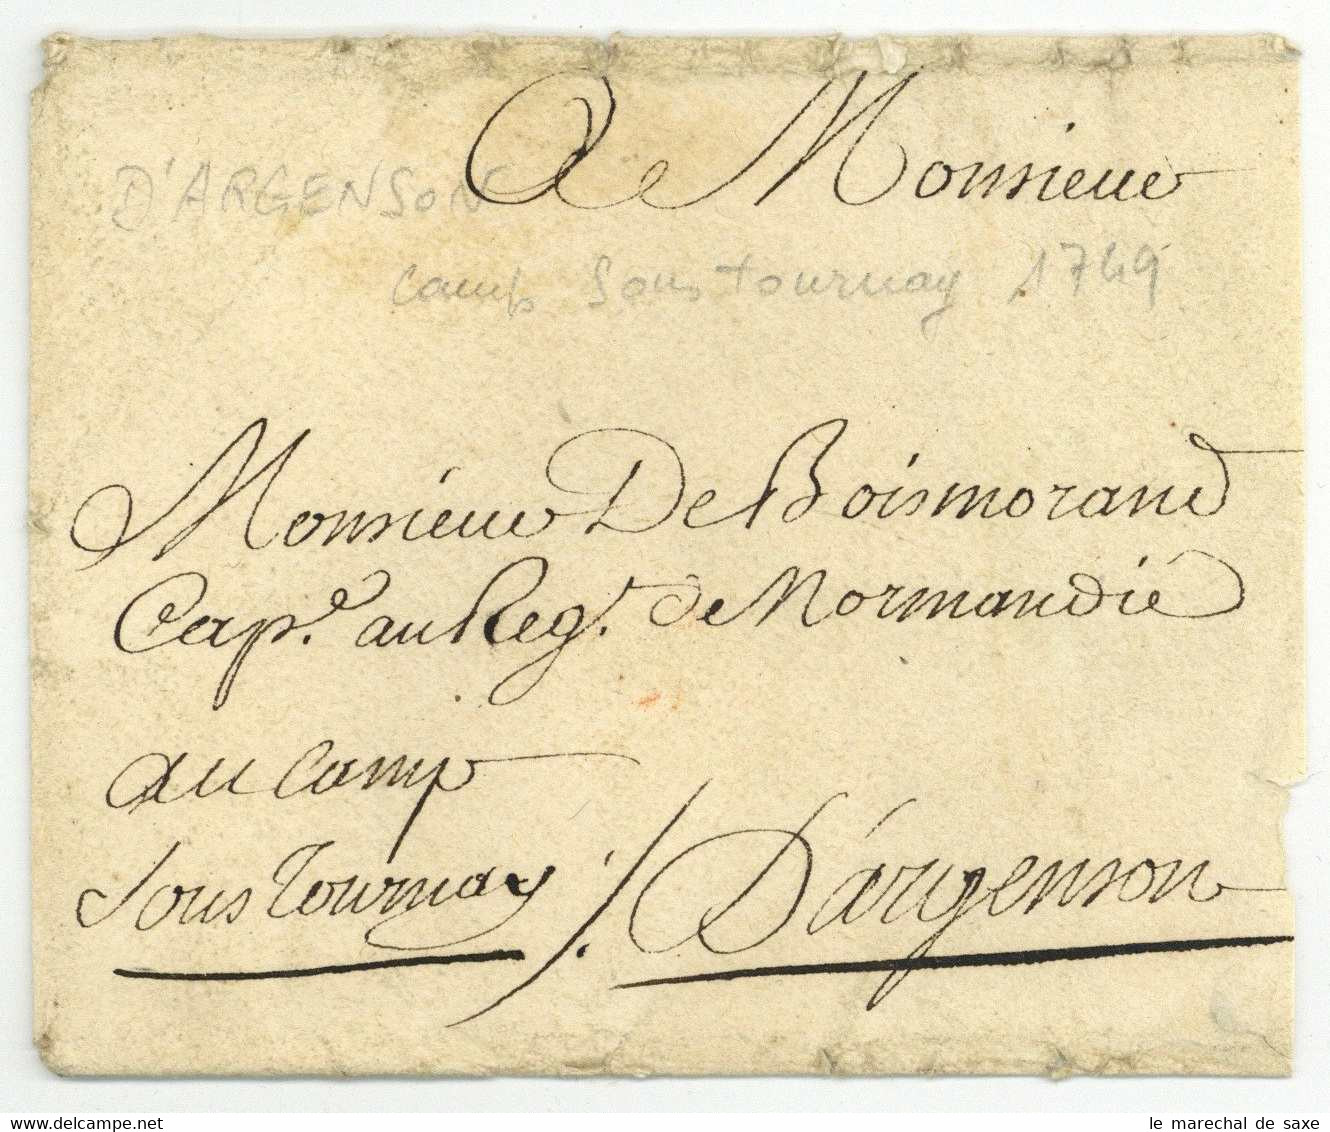 A Monsieur
D'ARGENSON
Camp Sous tournay 1749
Monsieur De Boismorand
Cap.e au Reg.t de Normandie
au Camp
Sous Tournay ./. D'argenson
www.delcampe.net
le marechal de saxe